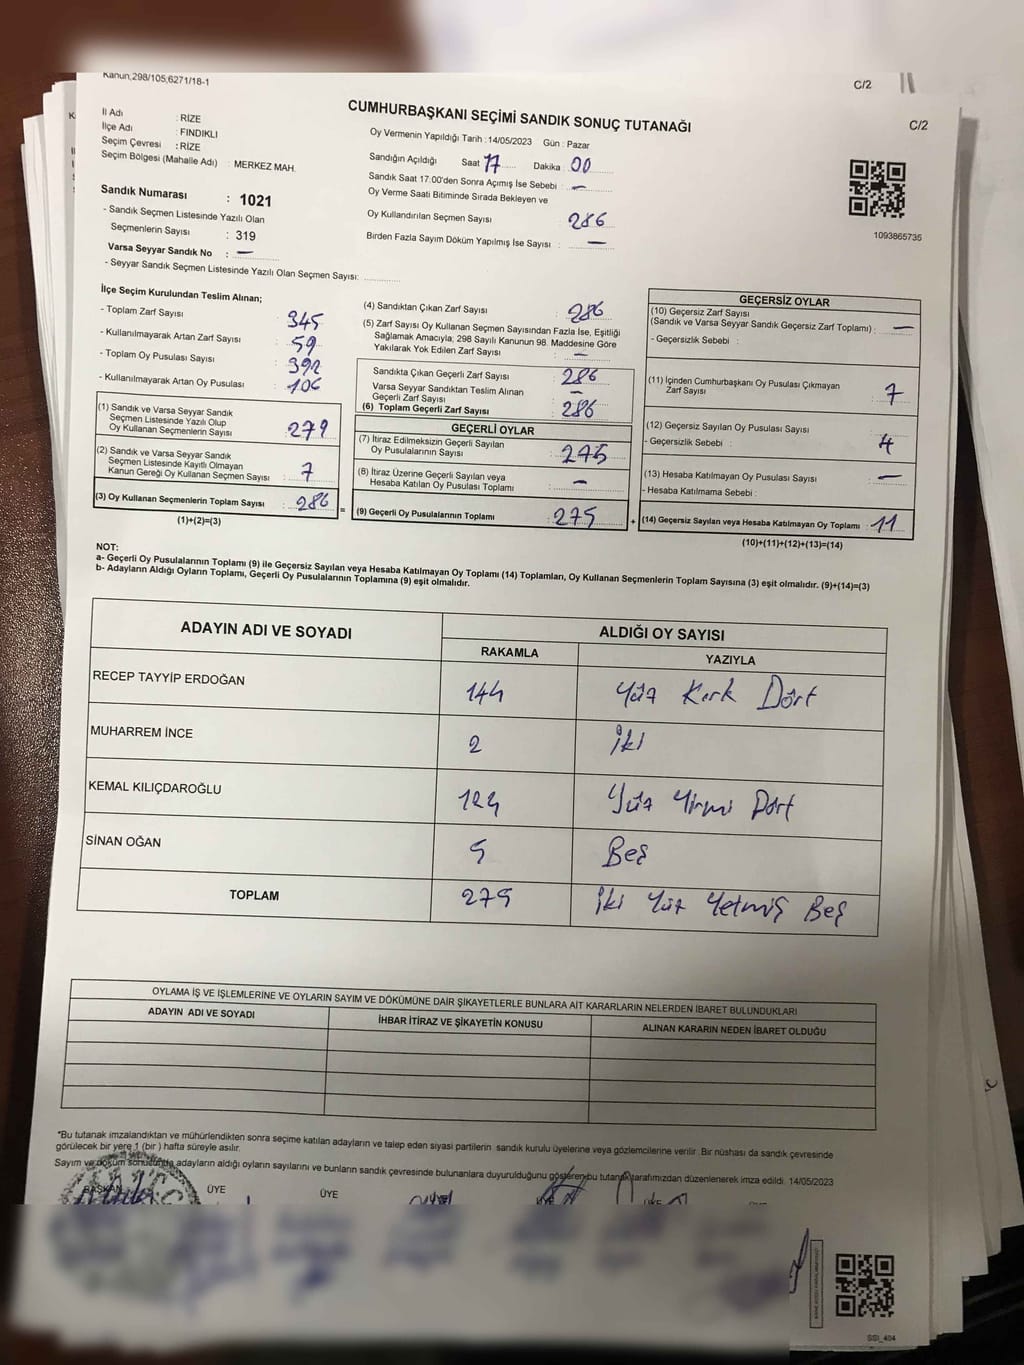 Kanun;298/105;6271/18-1
C/2
C/2
CUMHURBAŞKANI SEÇİMİ SANDIK SONUÇ TUTANAĞI
İl Adı : RİZE
İlçe Adı : FINDIKLI
Seçim Çevresi : RİZE
Seçim Bölgesi (Mahalle Adı) : MERKEZ MAH.
Oy Vermenin Yapıldığı Tarih : 14/05/2023 Gün : Pazar
Sandığın Açıldığı Saat 17 Dakika 00
Sandık Saat 17:00'den Sonra Açımış İse Sebebi : —
Oy Verme Saati Bitiminde Sırada Bekleyen ve
Oy Kullandırılan Seçmen Sayısı : 286
Birden Fazla Sayım Döküm Yapılmış İse Sayısı : —
1093865735
Sandık Numarası : 1021
- Sandık Seçmen Listesinde Yazılı Olan
Seçmenlerin Sayısı : 319
Varsa Seyyar Sandık No : —
- Seyyar Sandık Seçmen Listesinde Yazılı Olan Seçmen Sayısı:
İlçe Seçim Kurulundan Teslim Alınan;
- Toplam Zarf Sayısı : 345
- Kullanılmayarak Artan Zarf Sayısı : 59
- Toplam Oy Pusulası Sayısı : 392
- Kullanılmayarak Artan Oy Pusulası : 106
(1) Sandık ve Varsa Seyyar Sandık
Seçmen Listesinde Yazılı Olup
Oy Kullanan Seçmenlerin Sayısı : 279
(2) Sandık ve Varsa Seyyar Sandık
Seçmen Listesinde Kayıtlı Olmayan
Kanun Gereği Oy Kullanan Seçmen Sayısı : 7
(3) Oy Kullanan Seçmenlerin Toplam Sayısı : 286
(1)+(2)=(3)
(4) Sandıktan Çıkan Zarf Sayısı : 286
(5) Zarf Sayısı Oy Kullanan Seçmen Sayısından Fazla İse, Eşitliği
Sağlamak Amacıyla; 298 Sayılı Kanunun 98. Maddesine Göre
Yakılarak Yok Edilen Zarf Sayısı : —
Sandıkta Çıkan Geçerli Zarf Sayısı : 286
Varsa Seyyar Sandıktan Teslim Alınan
Geçerli Zarf Sayısı : —
(6) Toplam Geçerli Zarf Sayısı : 286
GEÇERLİ OYLAR
(7) İtiraz Edilmeksizin Geçerli Sayılan
Oy Pusulalarının Sayısı : 275
(8) İtiraz Üzerine Geçerli Sayılan veya
Hesaba Katılan Oy Pusulası Toplamı : —
= (9) Geçerli Oy Pusulalarının Toplamı : 275 +
GEÇERSİZ OYLAR
(10) Geçersiz Zarf Sayısı
(Sandık ve Varsa Seyyar Sandık Geçersiz Zarf Toplamı) : —
- Geçersizlik Sebebi :
(11) İçinden Cumhurbaşkanı Oy Pusulası Çıkmayan
Zarf Sayısı : 7
(12) Geçersiz Sayılan Oy Pusulası Sayısı : 4
- Geçersizlik Sebebi :
(13) Hesaba Katılmayan Oy Pusulası Sayısı : —
- Hesaba Katılmama Sebebi :
(14) Geçersiz Sayılan veya Hesaba Katılmayan Oy Toplamı : 11
(10)+(11)+(12)+(13)=(14)
NOT:
a- Geçerli Oy Pusulalarının Toplamı (9) ile Geçersiz Sayılan veya Hesaba Katılmayan Oy Toplamı (14) Toplamları, Oy Kullanan Seçmenlerin Toplam Sayısına (3) eşit olmalıdır. (9)+(14)=(3)
b- Adayların Aldığı Oyların Toplamı, Geçerli Oy Pusulalarının Toplamına (9) eşit olmalıdır.
ADAYIN ADI VE SOYADI ALDIĞI OY SAYISI
RAKAMLA YAZIYLA
RECEP TAYYİP ERDOĞAN 144 Yüz Kırk Dört
MUHARREM İNCE 2 İki
KEMAL KILIÇDAROĞLU 124 Yüz Yirmi Dört
SİNAN OĞAN 5 Beş
TOPLAM 275 İki Yüz Yetmiş Beş
OYLAMA İŞ VE İŞLEMLERİNE VE OYLARIN SAYIM VE DÖKÜMÜNE DAİR ŞİKAYETLERLE BUNLARA AİT KARARLARIN NELERDEN İBARET BULUNDUKLARI
ADAYIN ADI VE SOYADI İHBAR İTİRAZ VE ŞİKAYETİN KONUSU ALINAN KARARIN NEDEN İBARET OLDUĞU
*Bu tutanak imzalandıktan ve mühürlendikten sonra seçime katılan adayların ve talep eden siyasi partilerin sandık kurulu üyelerine veya gözlemcilerine verilir. Bir nüshası da sandık çevresinde
görülecek bir yere 1 (bir ) hafta süreyle asılır.
Sayım ve döküm sonucunda adayların aldığı oyların sayılarını ve bunların sandık çevresinde bulunanlara duyurulduğunu gösteren bu tutanak tarafımızdan düzenlenerek imza edildi. 14/05/2023
BAŞKAN ÜYE ÜYE
SSI_404